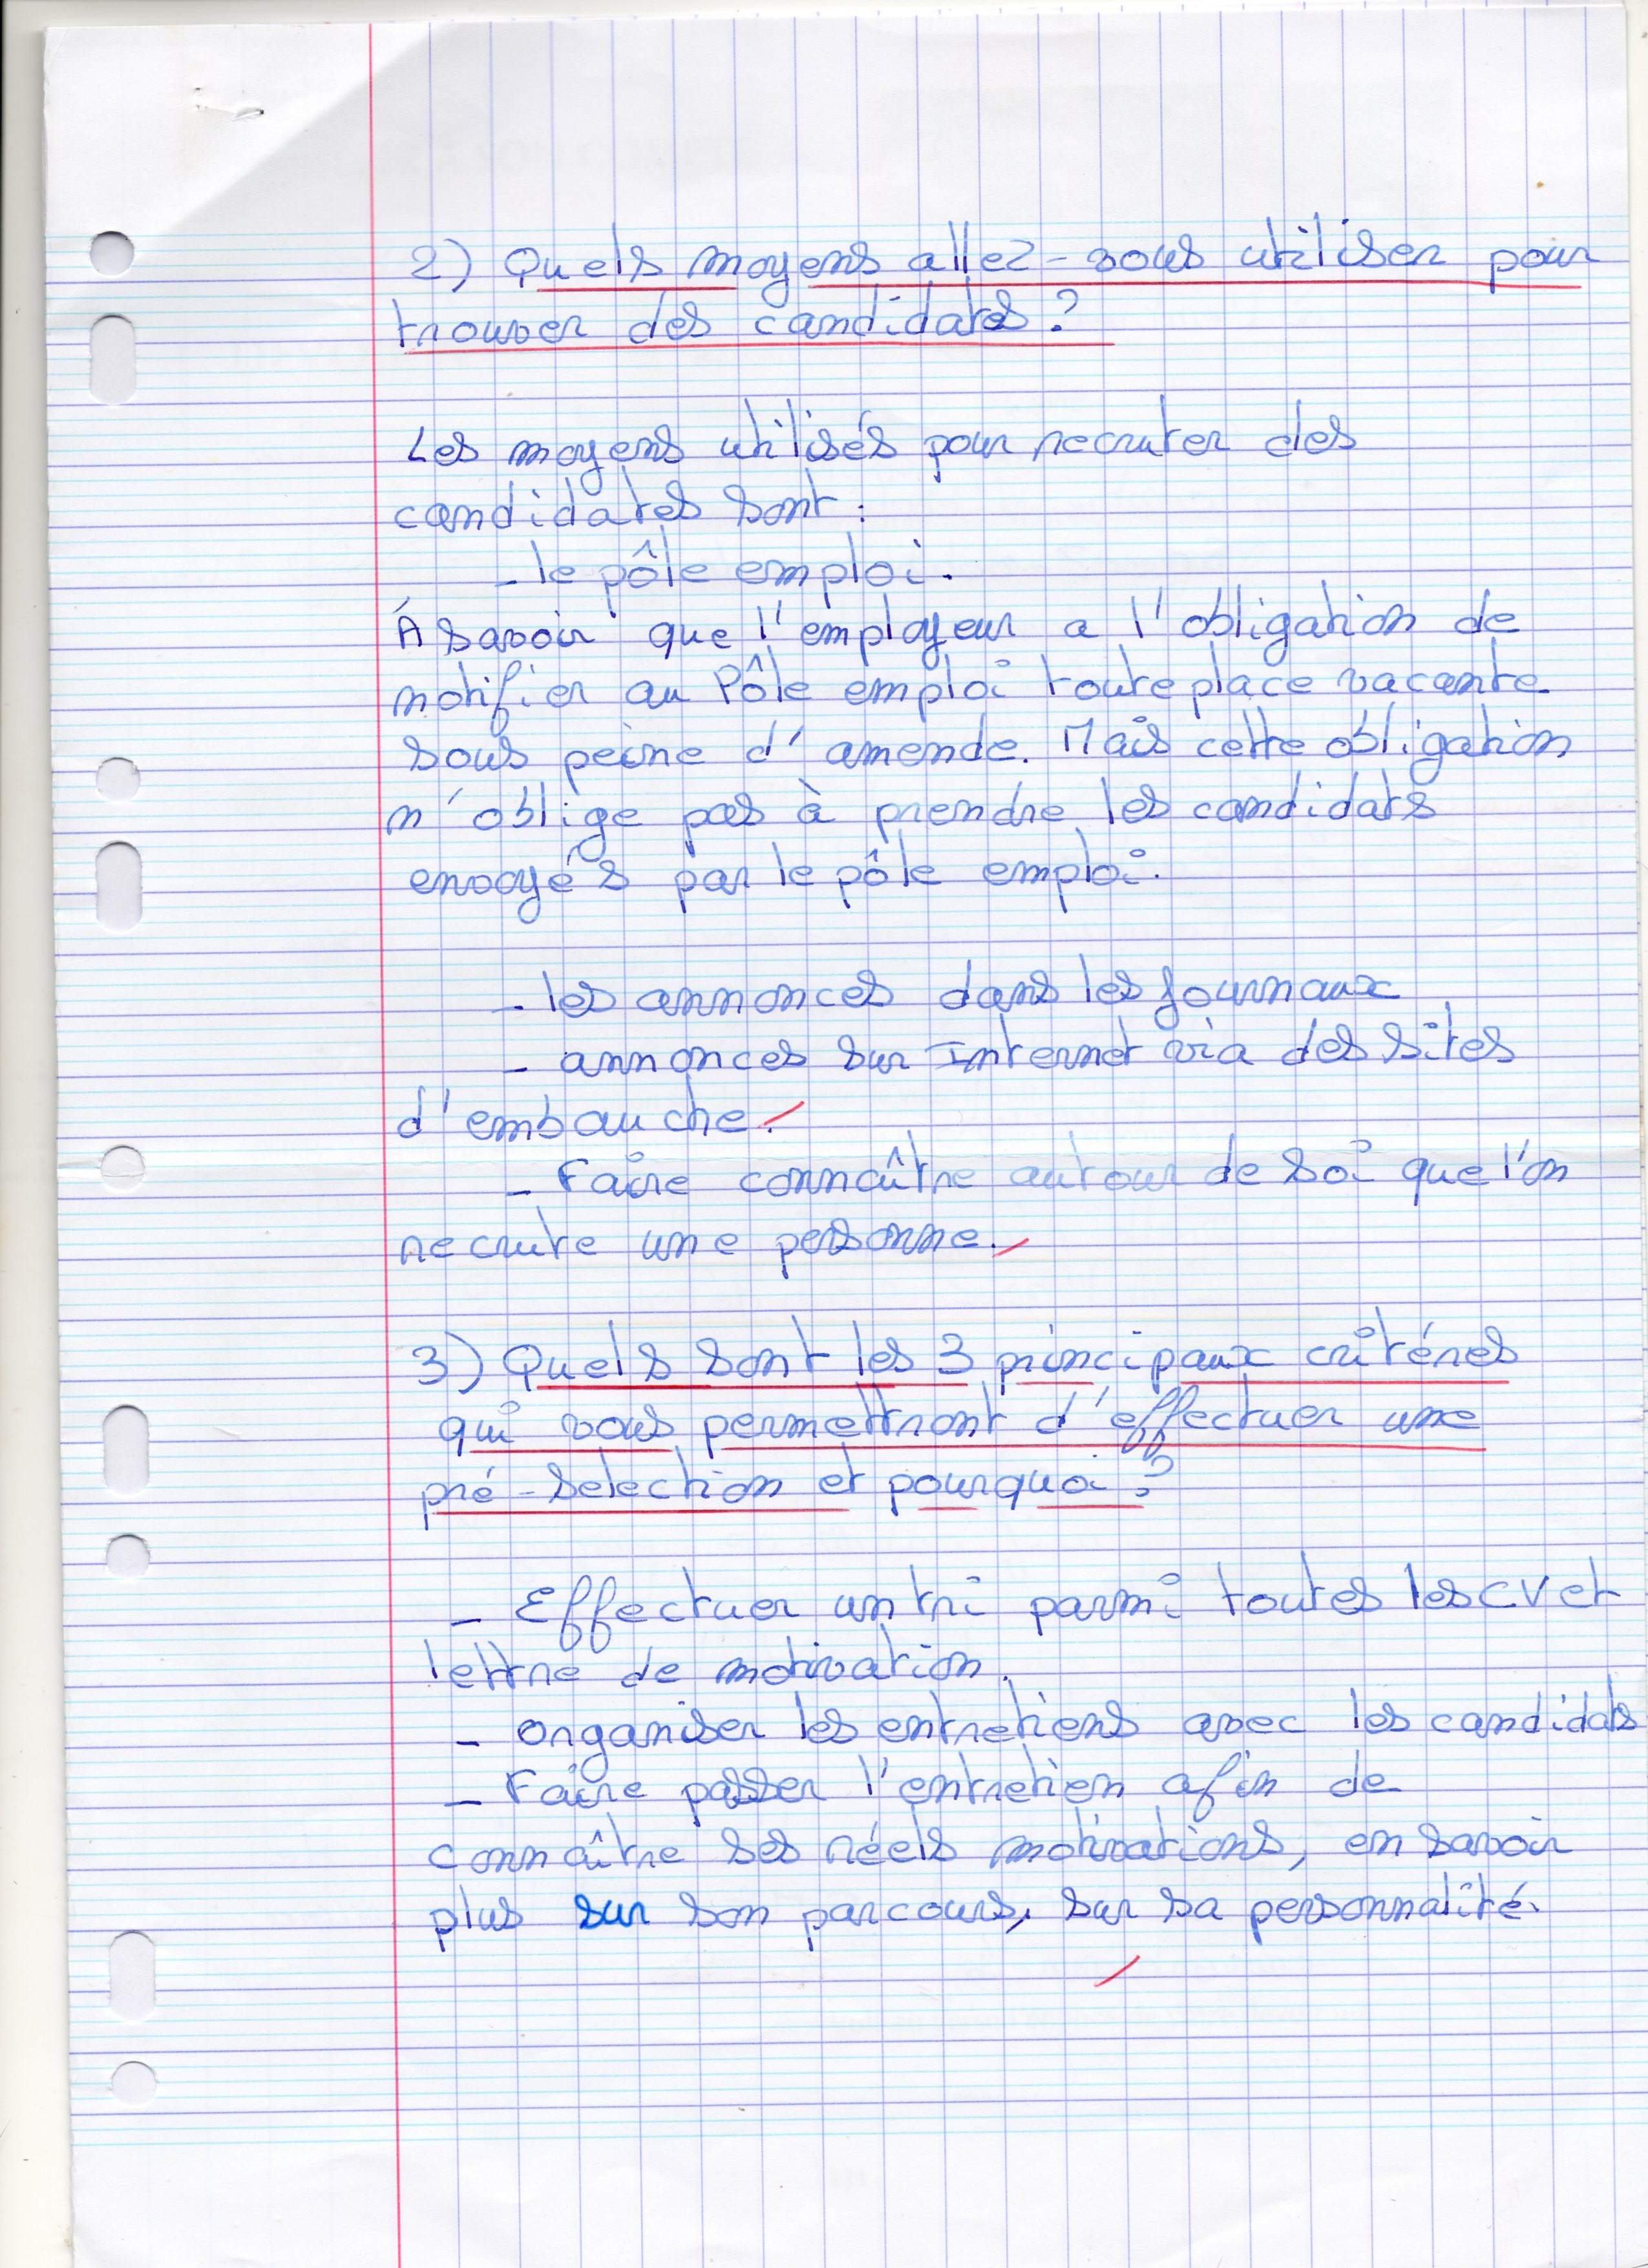 2) Quels moyens allez-vous utiliser pour
trouver des candidates ?
Les moyens utilisés pour recruter des
candidates sont :
- le pôle emploi.
À savoir que l'employeur a l'obligation de
notifier au Pôle emploi toute place vacante
sous peine d'amende. Mais cette obligation
n'oblige pas à prendre les candidats
envoyés par le pôle emploi.
- les annonces dans les journaux
- annonces sur Internet via des sites
d'embauche.
- Faire connaître autour de soi que l'on
recrute une personne.
3) Quels sont les 3 principaux critéres
qui vous permettront d'effectuer une
pré-selection et pourquoi ?
- Effectuer un tri parmi toutes les CV et
lettre de motivation.
- organiser les entretiens avec les candidats
- Faire passer l'entretien afin de
connaître ses réels motivations, en savoir
plus sur son parcours, sur sa personnalité.